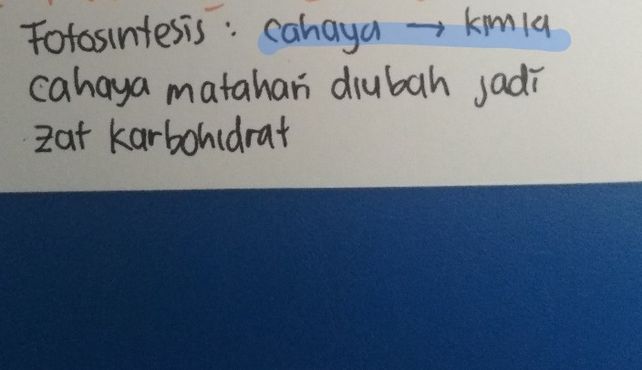 Fotosintesis : cahaya → kimia
cahaya matahari diubah jadi
zat karbohidrat